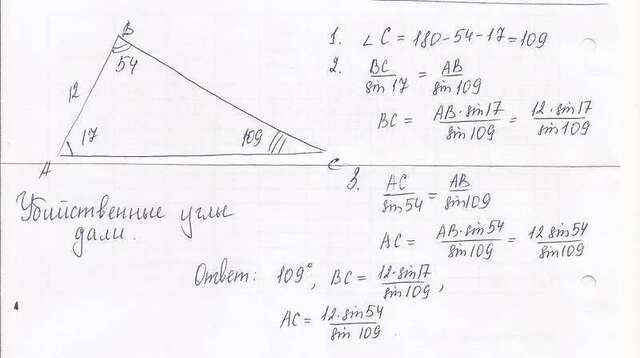 B
54
12
17
109
A
C
1. ∠C = 180-54-17=109
2. BC/sin17 = AB/sin109
BC = AB·sin17/sin109 = 12·sin17/sin109
3. AC/sin54 = AB/sin109
AC = AB·sin54/sin109 = 12 sin54/sin109
Убийственные углы
дали.
Ответ: 109°, BC = 12·sin17/sin109,
AC = 12·sin54/sin 109